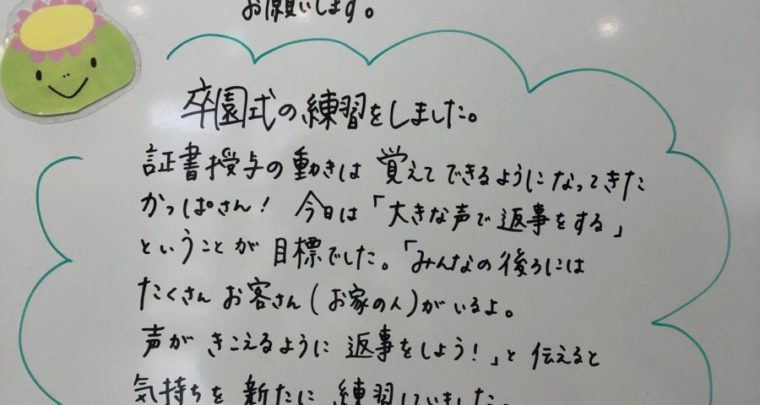 お願いします。
卒園式の練習をしました。
証書授与の動きは 覚えてできるようになってきた
かっぱさん! 今日は「大きな声で返事をする」
ということが 目標でした。「みんなの後ろには
たくさん お客さん(お家の人)がいるよ。
声が きこえるように 返事をしよう!」と 伝えると
気持ちを 新たに 練習していました。